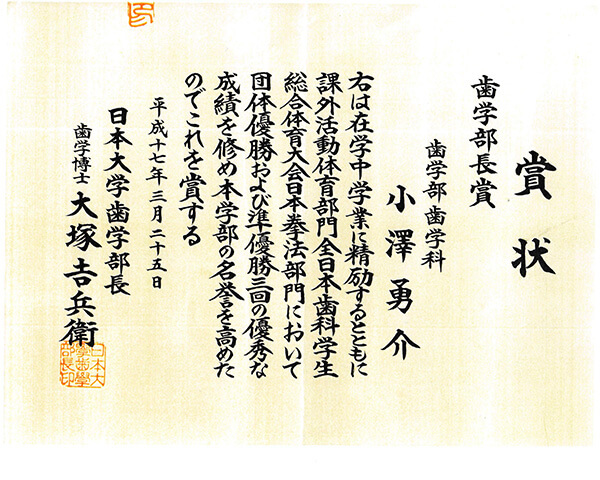 賞状
歯学部長賞
歯学部歯学科
小澤勇介
右は在学中学業に精励するとともに
課外活動体育部門全日本歯科学生
総合体育大会日本拳法部門において
団体優勝および準優勝三回の優秀な
成績を修め本学部の名誉を高めた
のでこれを賞する
平成十七年三月二十五日
日本大学歯学部長
歯学博士 大塚吉兵衛
日本大
學歯學
部長印